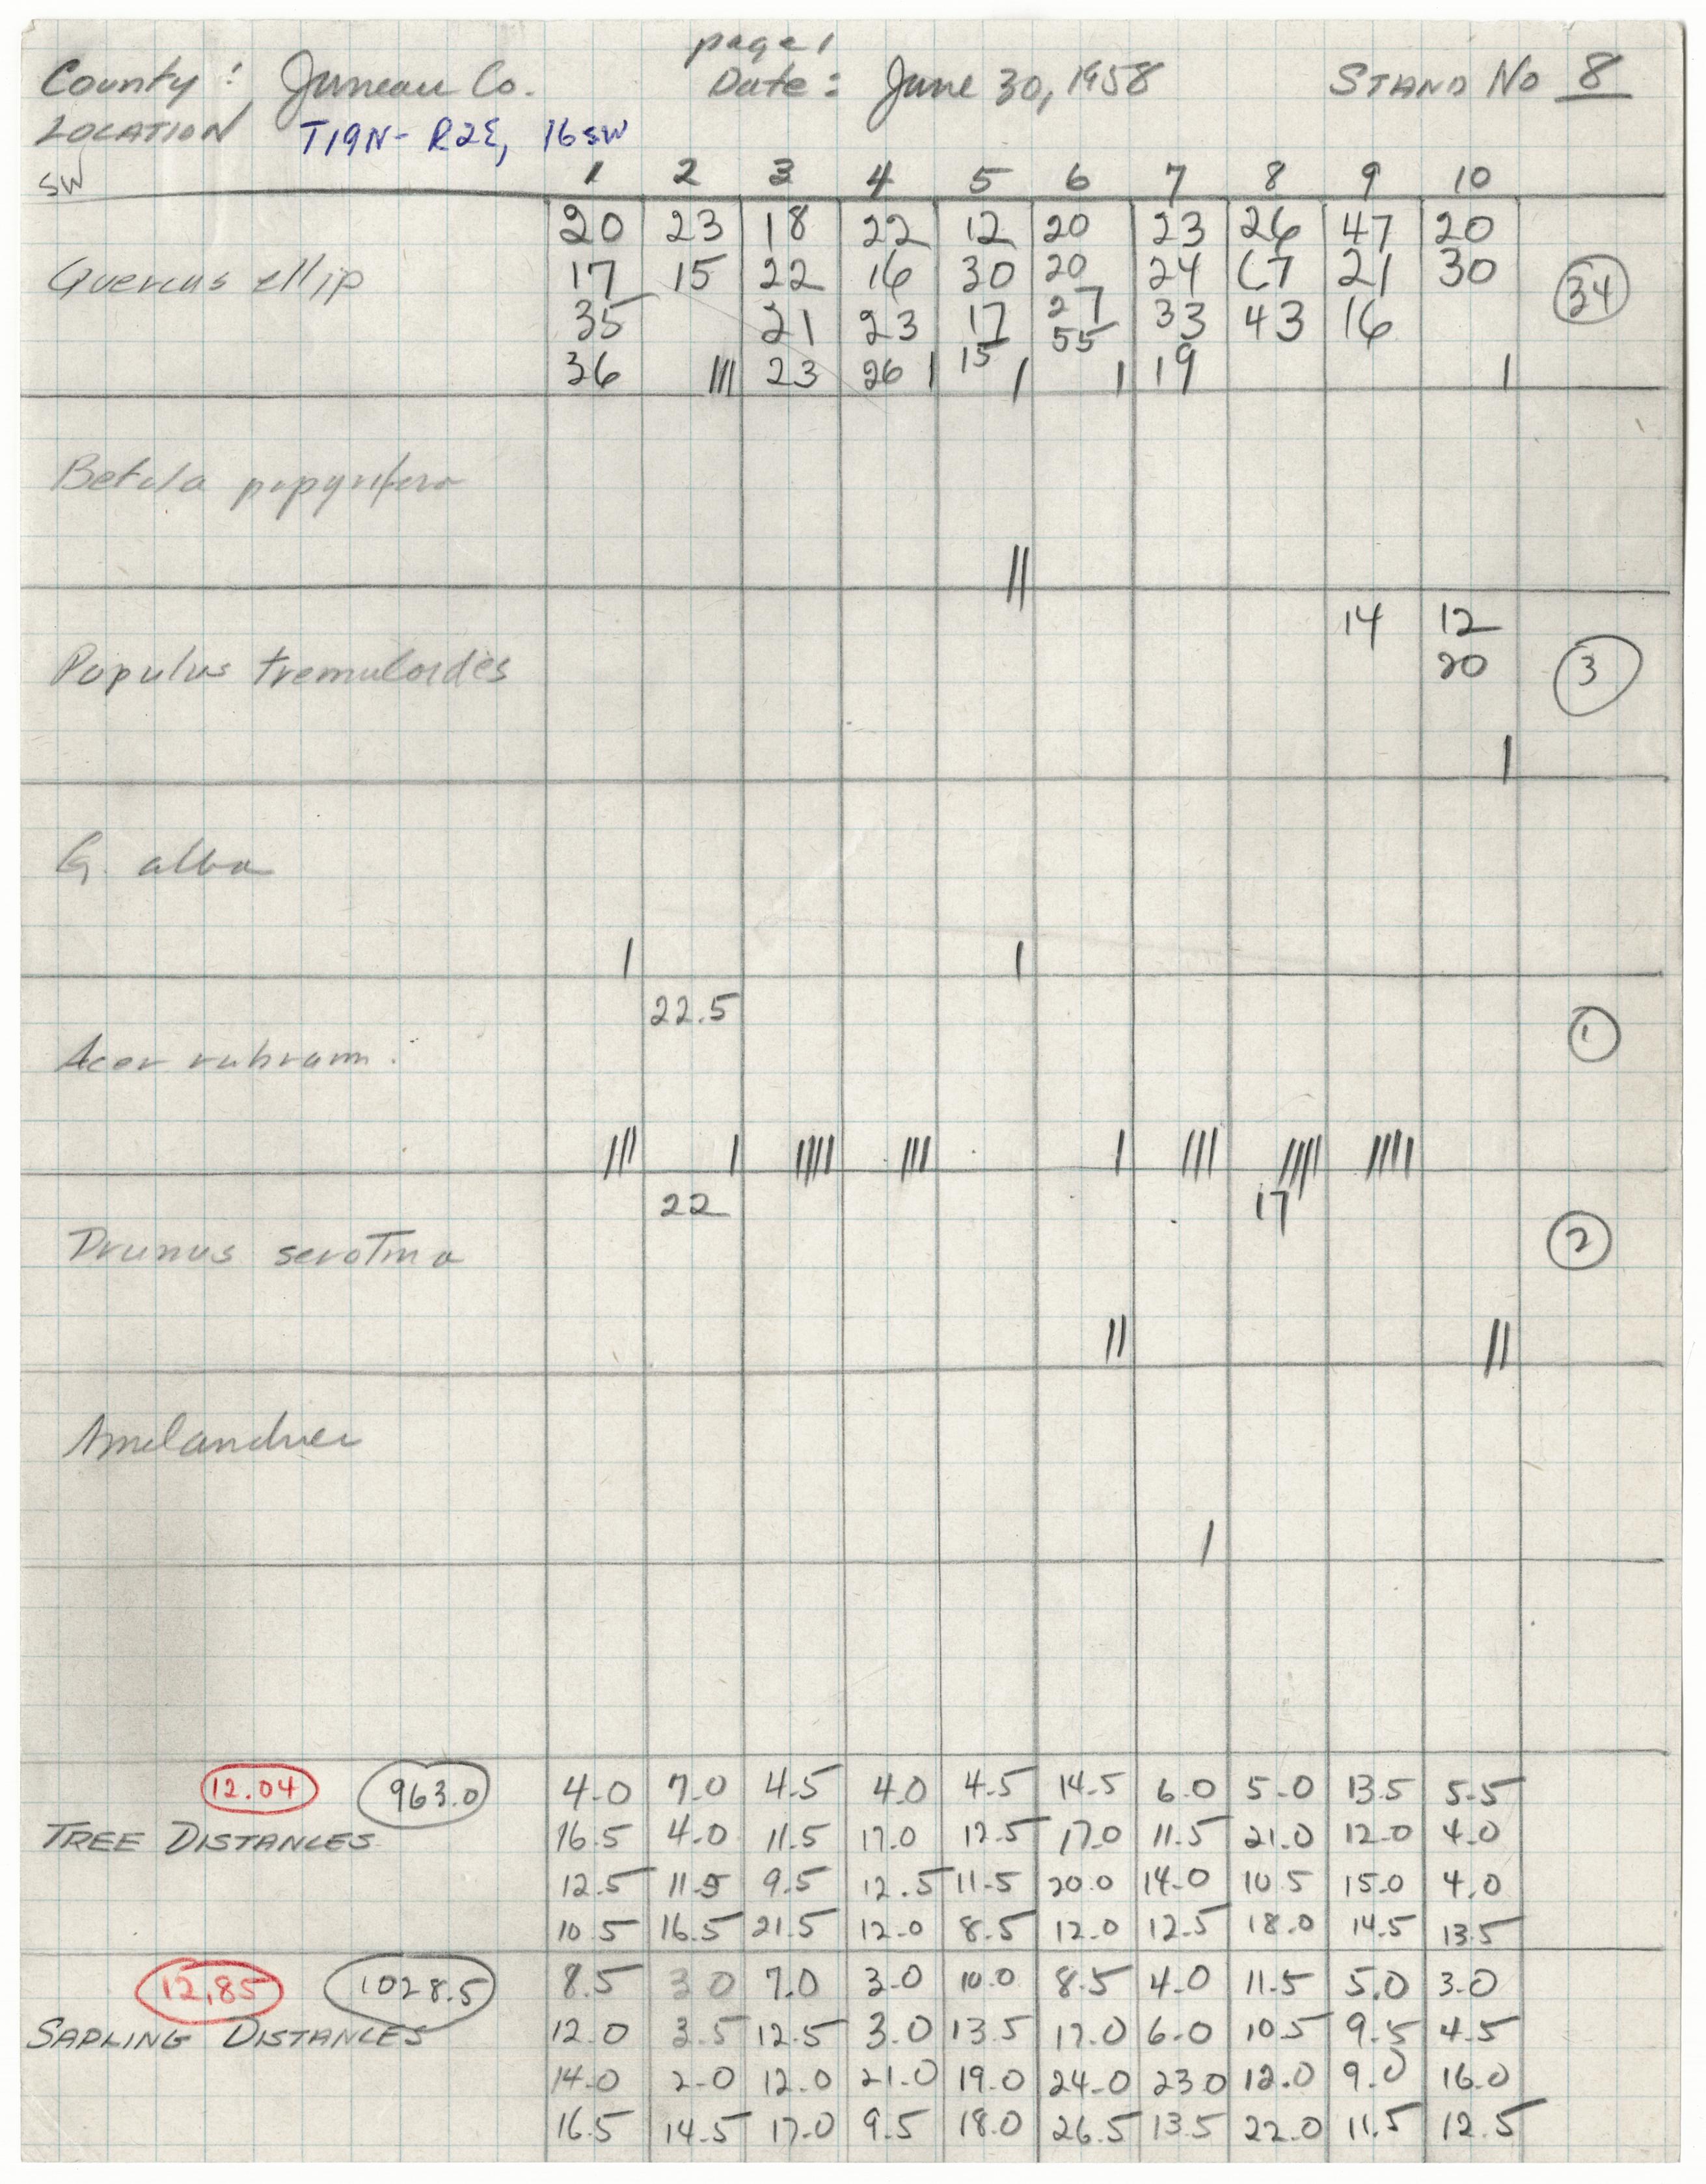 page 1
County: Juneau Co. Date: June 30, 1958 STAND No 8
LOCATION T19N- R2E, 16SW
SW
1 2 3 4 5 6 7 8 9 10
20 23 18 22 12 20 23 26 47 20
Quercus ellip 17 15 22 16 30 20 24 17 21 30 34
35 21 23 17 27 33 43 16
36 ||| 23 26 | 15 | 55 | 19 |
Betula papyrifera
||
14 12
Populus tremuloides 20 3
|
Q. alba
| |
22.5
Acer rubrum. 1
||| | |||| ||| | ||| |||| ||||
22 17
Prunus serotina 2
|| ||
Amelanchier
|
12.04 963.0 4.0 7.0 4.5 4.0 4.5 14.5 6.0 5.0 13.5 5.5
TREE DISTANCES 16.5 4.0 11.5 17.0 12.5 17.0 11.5 21.0 12.0 4.0
12.5 11.5 9.5 12.5 11.5 20.0 14.0 10.5 15.0 4.0
10.5 16.5 21.5 12.0 8.5 12.0 12.5 18.0 14.5 13.5
12.85 1028.5 8.5 3.0 7.0 3.0 10.0 8.5 4.0 11.5 5.0 3.0
SAPLING DISTANCES 12.0 3.5 12.5 3.0 13.5 17.0 6.0 10.5 9.5 4.5
14.0 2.0 12.0 21.0 19.0 24.0 23.0 12.0 9.0 16.0
16.5 14.5 17.0 9.5 18.0 26.5 13.5 22.0 11.5 12.5